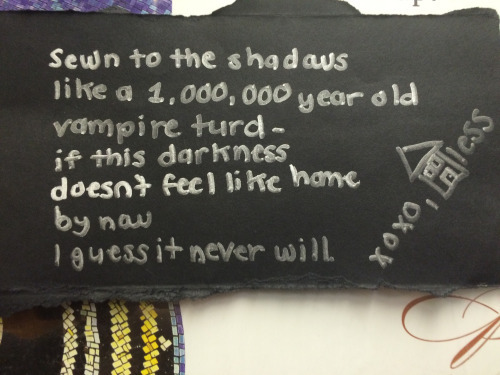 Sewn to the shadows
like a 1,000,000 year old
vampire turd-
if this darkness
doesn't feel like home
by now
I guess it never will.
xoxo,
less